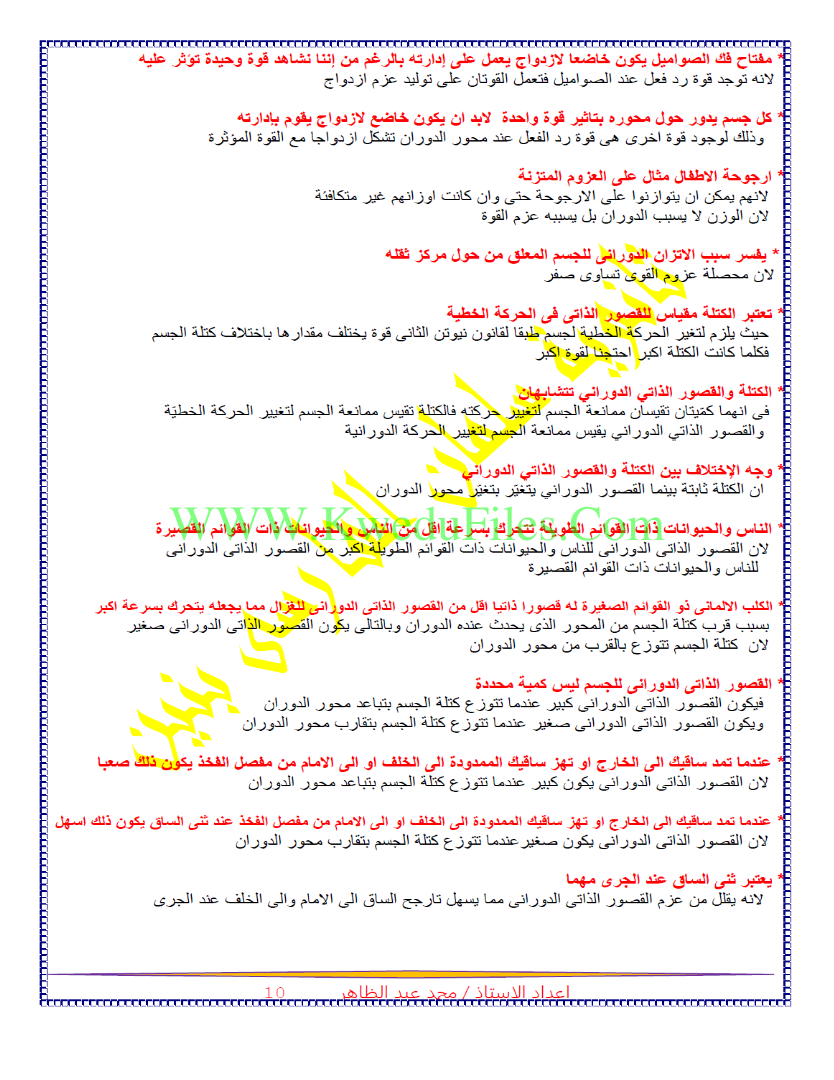 * مفتاح فك الصواميل يكون خاضعا لازدواج يعمل على إدارته بالرغم من إننا نشاهد قوة وحيدة تؤثر عليه
لانه توجد قوة رد فعل عند الصواميل فتعمل القوتان على توليد عزم ازدواج
* كل جسم يدور حول محوره بتاثير قوة واحدة لابد ان يكون خاضع لازدواج يقوم بإدارته
وذلك لوجود قوة اخرى هى قوة رد الفعل عند محور الدوران تشكل ازدواجا مع القوة المؤثرة
* ارجوحة الاطفال مثال على العزوم المتزنة
لانهم يمكن ان يتوازنوا على الارجوحة حتى وان كانت اوزانهم غير متكافئة
لان الوزن لا يسبب الدوران بل يسببه عزم القوة
* يفسر سبب الاتزان الدورانى للجسم المعلق من حول مركز ثقله
لان محصلة عزوم القوى تساوى صفر
* تعتبر الكتلة مقياس للقصور الذاتى فى الحركة الخطية
حيث يلزم لتغير الحركة الخطية لجسم طبقا لقانون نيوتن الثانى قوة يختلف مقدارها باختلاف كتلة الجسم
فكلما كانت الكتلة اكبر احتجنا لقوة اكبر
* الكتلة والقصور الذاتي الدوراني تتشابهان
فى انهما كمّيتان تقيسان ممانعة الجسم لتغيير حركته فالكتلة تقيس ممانعة الجسم لتغيير الحركة الخطيّة
والقصور الذاتي الدوراني يقيس ممانعة الجسم لتغيير الحركة الدورانية
* وجه الإختلاف بين الكتلة والقصور الذاتي الدوراني
ان الكتلة ثابتة بينما القصور الدوراني يتغيّر بتغيّر محور الدوران
* الناس والحيوانات ذات القوائم الطويلة تتحرك بسرعة اقل من الناس والحيوانات ذات القوائم القصيرة
لان القصور الذاتى الدورانى للناس والحيوانات ذات القوائم الطويلة اكبر من القصور الذاتى الدورانى
للناس والحيوانات ذات القوائم القصيرة
* الكلب الالمانى ذو القوائم الصغيرة له قصورا ذاتيا اقل من القصور الذاتى الدورانى للغزال مما يجعله يتحرك بسرعة اكبر
بسبب قرب كتلة الجسم من المحور الذى يحدث عنده الدوران وبالتالى يكون القصور الذاتى الدورانى صغير
لان كتلة الجسم تتوزع بالقرب من محور الدوران
* القصور الذاتى الدورانى للجسم ليس كمية محددة
فيكون القصور الذاتى الدورانى كبير عندما تتوزع كتلة الجسم بتباعد محور الدوران
ويكون القصور الذاتى الدورانى صغير عندما تتوزع كتلة الجسم بتقارب محور الدوران
* عندما تمد ساقيك الى الخارج او تهز ساقيك الممدودة الى الخلف او الى الامام من مفصل الفخذ يكون ذلك صعبا
لان القصور الذاتى الدورانى يكون كبير عندما تتوزع كتلة الجسم بتباعد محور الدوران
* عندما تمد ساقيك الى الخارج او تهز ساقيك الممدودة الى الخلف او الى الامام من مفصل الفخذ عند ثنى الساق يكون ذلك اسهل
لان القصور الذاتى الدورانى يكون صغيرعندما تتوزع كتلة الجسم بتقارب محور الدوران
* يعتبر ثنى الساق عند الجرى مهما
لانه يقلل من عزم القصور الذاتى الدورانى مما يسهل تارجح الساق الى الامام والى الخلف عند الجرى
WWW.KweduFiles.Com
اعداد الاستاذ / محمد عبد الظاهر 10